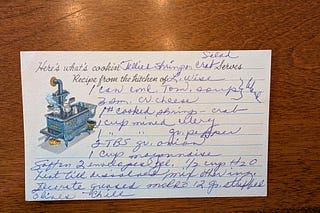 Salad
Here's what's cookin' Jellied Shrimp or Crab Serves
Recipe from the kitchen of L. Wise
1 can cond. Tom. soup
2 sm. cr cheese
1# cooked shrimp - crab
1 cup minced celery
1 " " gr. pepper
2 TBS gr. onion
1 cup mayonnaise
Soften 2 envelopes gel. 1/2 cup H2O
Heat till dissolved mix other ing.
Decorate greased mold 12 gr. stuffed
olives - Chill